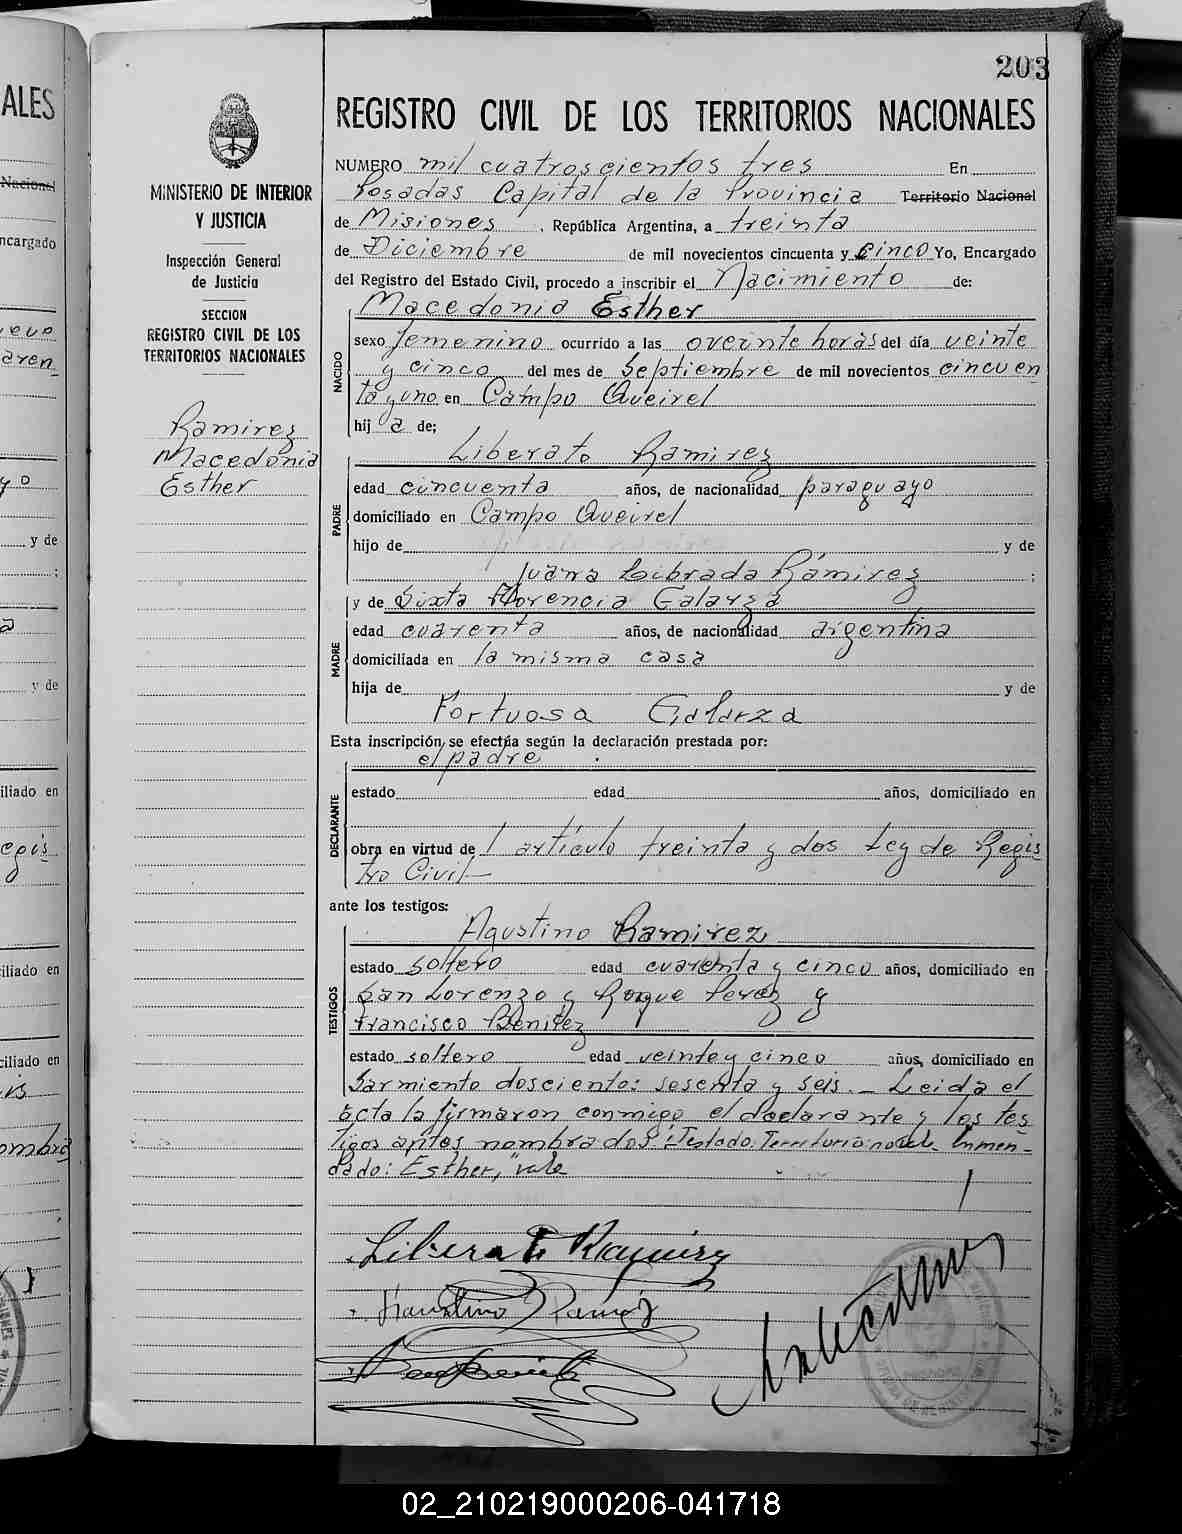 203
ALES
REGISTRO CIVIL DE LOS TERRITORIOS NACIONALES
MINISTERIO DE INTERIOR
Y JUSTICIA
Inspección General
de Justicia
SECCION
REGISTRO CIVIL DE LOS
TERRITORIOS NACIONALES
Ramirez
Macedonia
Esther
NUMERO mil cuatroscientos tres En
Posadas Capital de la Provincia Territorio Nacional
de Misiones , República Argentina, a treinta
de Diciembre de mil novecientos cincuenta y cinco Yo, Encargado
del Registro del Estado Civil, procedo a inscribir el Nacimiento de:
Macedonia Esther
NACIDO
sexo femenino ocurrido a las veinte horas del día veinte
y cinco del mes de Septiembre de mil novecientos cincuen
ta y uno en Campo Queirel
hij a de;
Liberato Ramirez
PADRE
edad cincuenta años, de nacionalidad paraguayo
domiciliado en Campo Queirel
hijo de y de
Juana Librada Ramirez ;
y de Sixta Florencia Galarza
MADRE
edad cuarenta años, de nacionalidad argentina
domiciliada en la misma casa
hija de y de
Fortuosa Galarza
Esta inscripción, se efectúa según la declaración prestada por:
el padre
DECLARANTE
estado edad años, domiciliado en
obra en virtud de l artículo treinta y dos Ley de Regis
tro Civil—
ante los testigos:
Agustino Ramirez
TESTIGOS
estado soltero edad cuarenta y cinco años, domiciliado en
San Lorenzo y Roque Perez y
Francisco Benitez
estado soltero edad veinte y cinco años, domiciliado en
Sarmiento doscientos sesenta y seis.— Leida el
acta la firmaron conmigo el declarante y los tes
tigos antes nombrados. Testado: Territorio no vale. Enmen-
dado: Esther, "vale
Liberato Ramirez
02_210219000206-041718